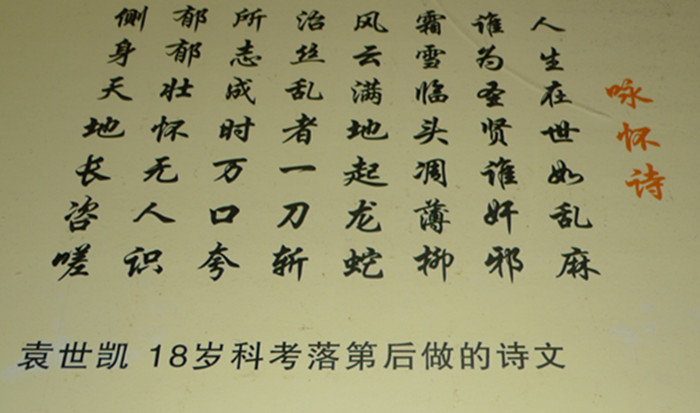 咏怀诗
人生在世如乱麻
谁为圣贤谁奸邪
霜雪临头凋薄柳
风云满地起龙蛇
治丝乱者一刀斩
所志成时万口夸
郁郁壮怀无人识
侧身天地长咨嗟
袁世凯 18岁科考落第后做的诗文